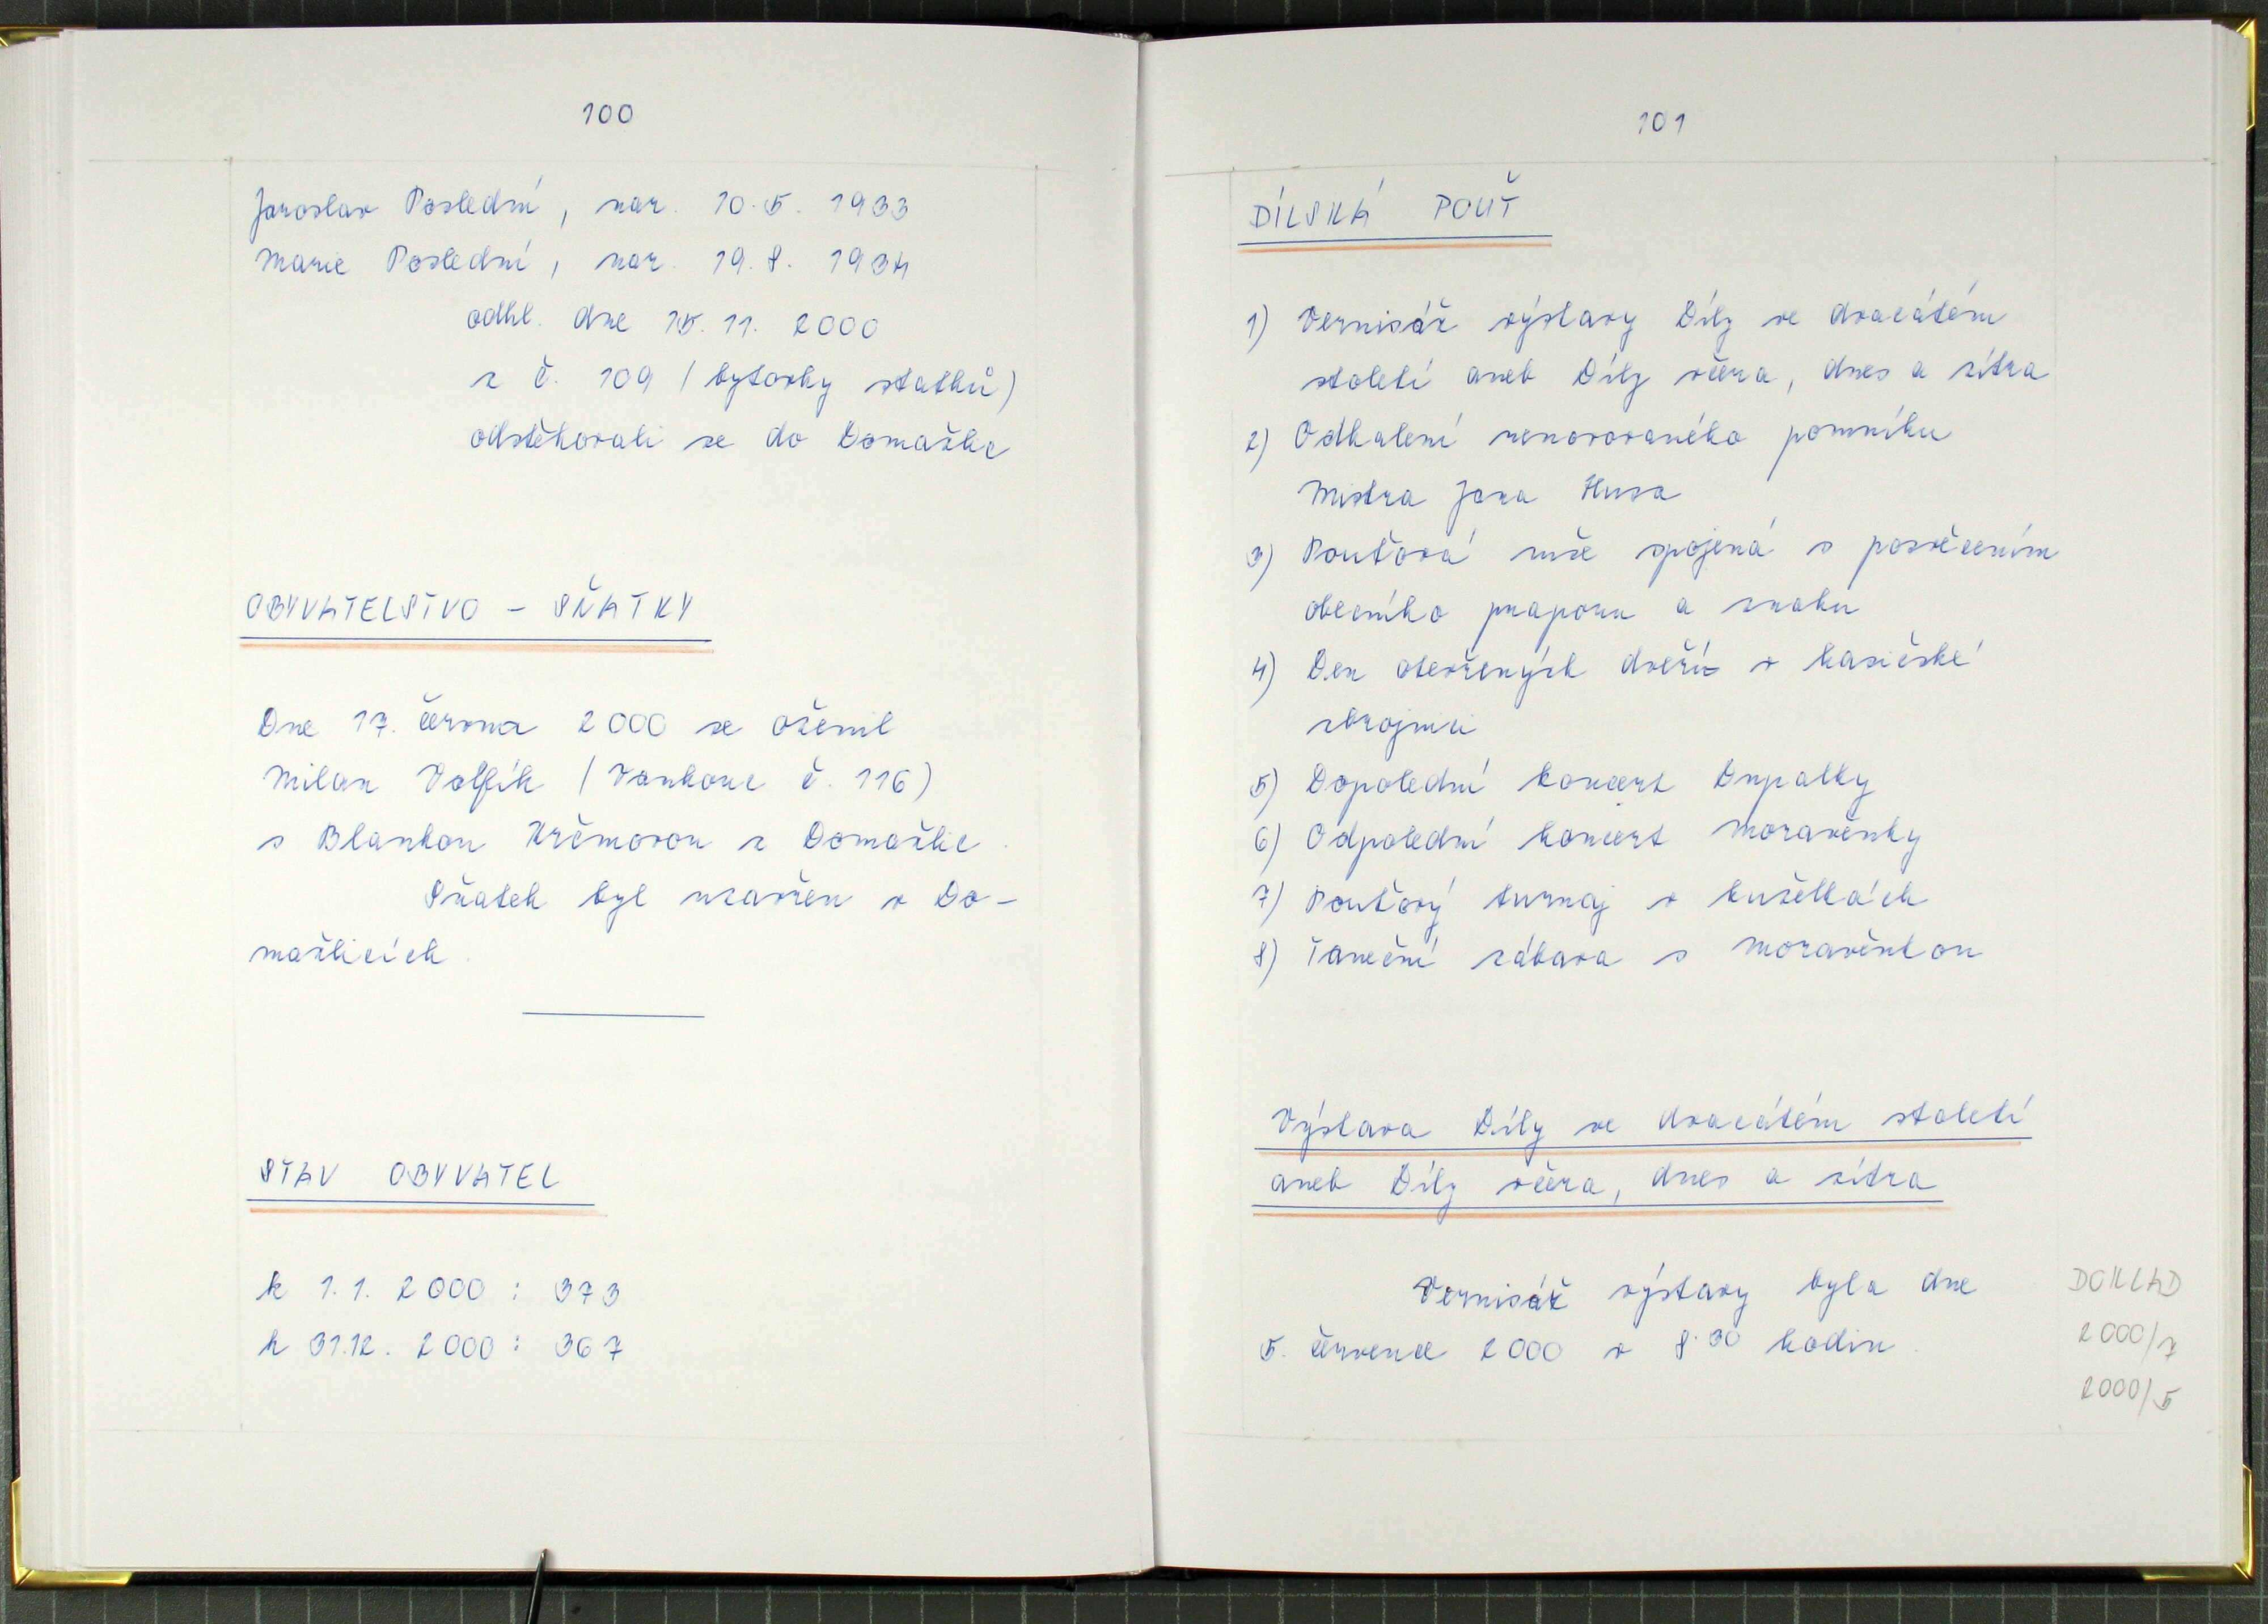 100
Jaroslav Poslední, nar. 10.5. 1933
Marie Poslední, nar. 19.8. 1934
odhl. dne 15.11. 2000
z č. 109 (bytovky statků)
odstěhovali se do Domažlic
OBYVATELSTVO - SŇATKY
Dne 17. června 2000 se oženil
Milan Volfík (Vankovic č. 116)
s Blankou Krčmovou z Domažlic.
Sňatek byl uzavřen v Do-
mažlicích.
STAV OBYVATEL
k 1.1. 2000 : 373
k 31.12. 2000 : 367
101
DÍLSKÁ POUŤ
1) Vernisáž výstavy Díly ve dvacátém
století aneb Díly včera, dnes a zítra
2) Odhalení renovovaného pomníku
Mistra Jana Husa
3) Pouťová mše spojená s posvěcením
obecního praporu a znaku
4) Den otevřených dveří v hasičské
zbrojnici
5) Dopolední koncert Dupalky
6) Odpolední koncert Moravěnky
7) Pouťový turnaj v kuželkách
8) Taneční zábava s Moravěnkou
Výstava Díly ve dvacátém století
aneb Díly včera, dnes a zítra
Vernisáž výstavy byla dne
5. července 2000 v 8.30 hodin.
DOKLAD
2000/7
2000/5